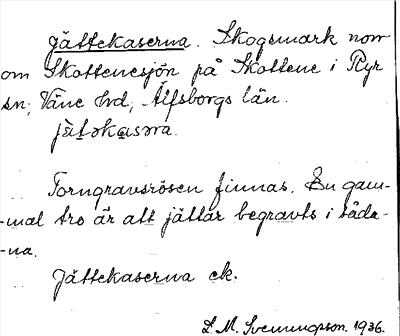 Jättekaserna. Skogsmark norr
om Skottenesjön på Skottene i Ryr
sn; Väne hd, Älfsborgs län.
jätəkasəra.
Forngravsrösen finnas. En gam-
-mal tro är att jättar begravts i såda-
-na.
Jättekaserna ek.
L. M. Svenungsson. 1936.